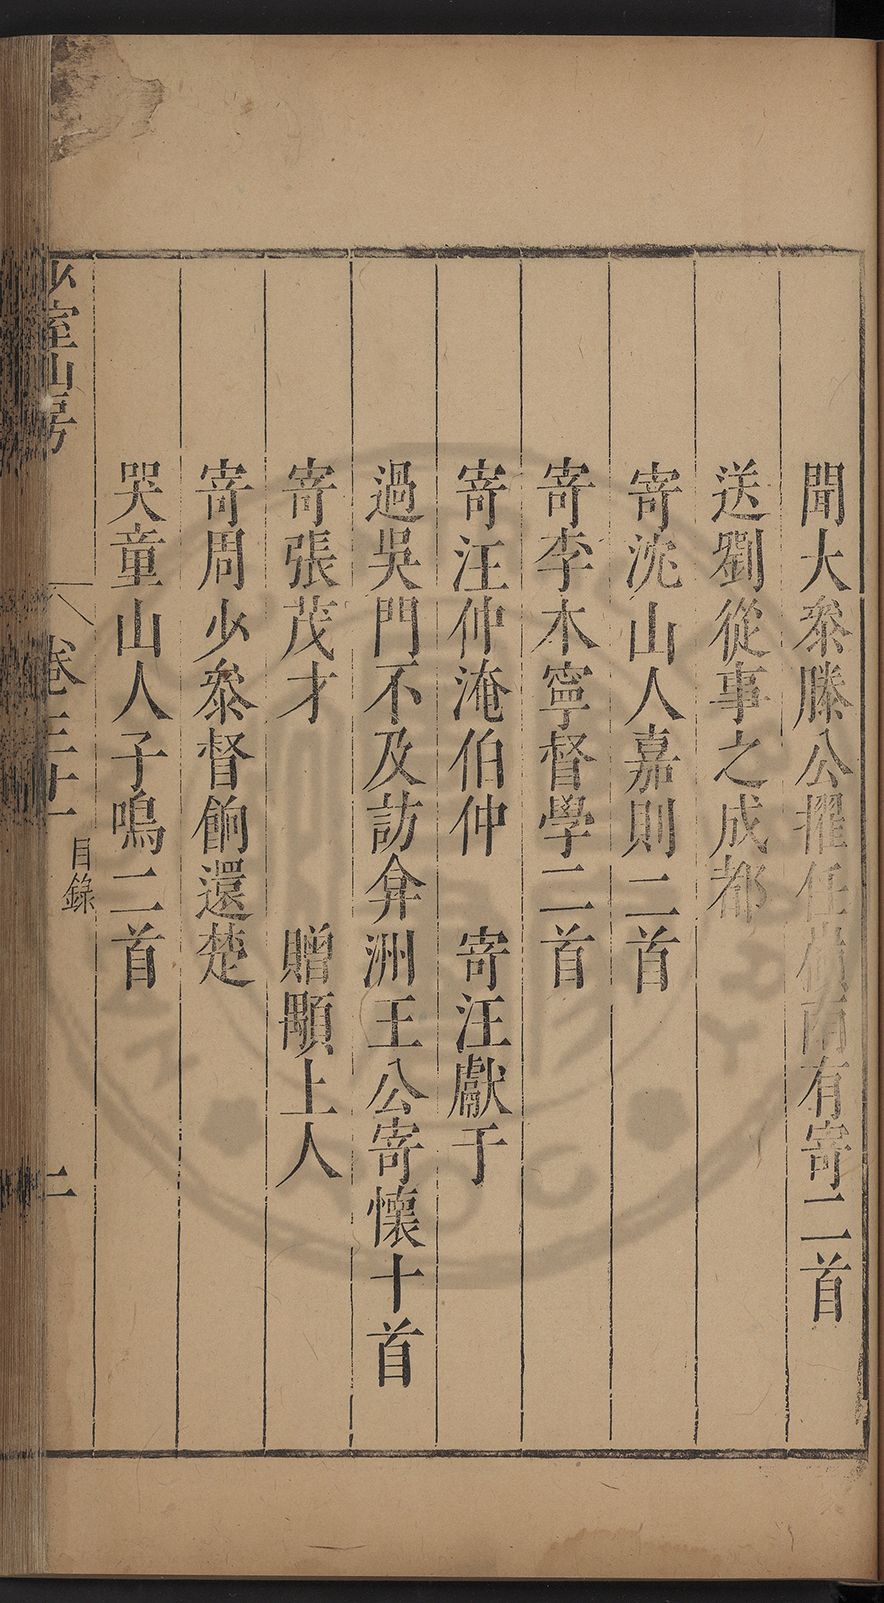 聞大叅滕公擢任嶺南有寄二首
送劉從事之成都
寄沈山人嘉則二首
寄李本寧督學二首
寄汪仲淹伯仲　寄汪獻于
過吳門不及訪弇洲王公寄懷十首
寄張茂才　贈顒上人
寄周少叅督餉還楚
哭童山人子鳴二首
少室山房　卷三十一　目錄　二